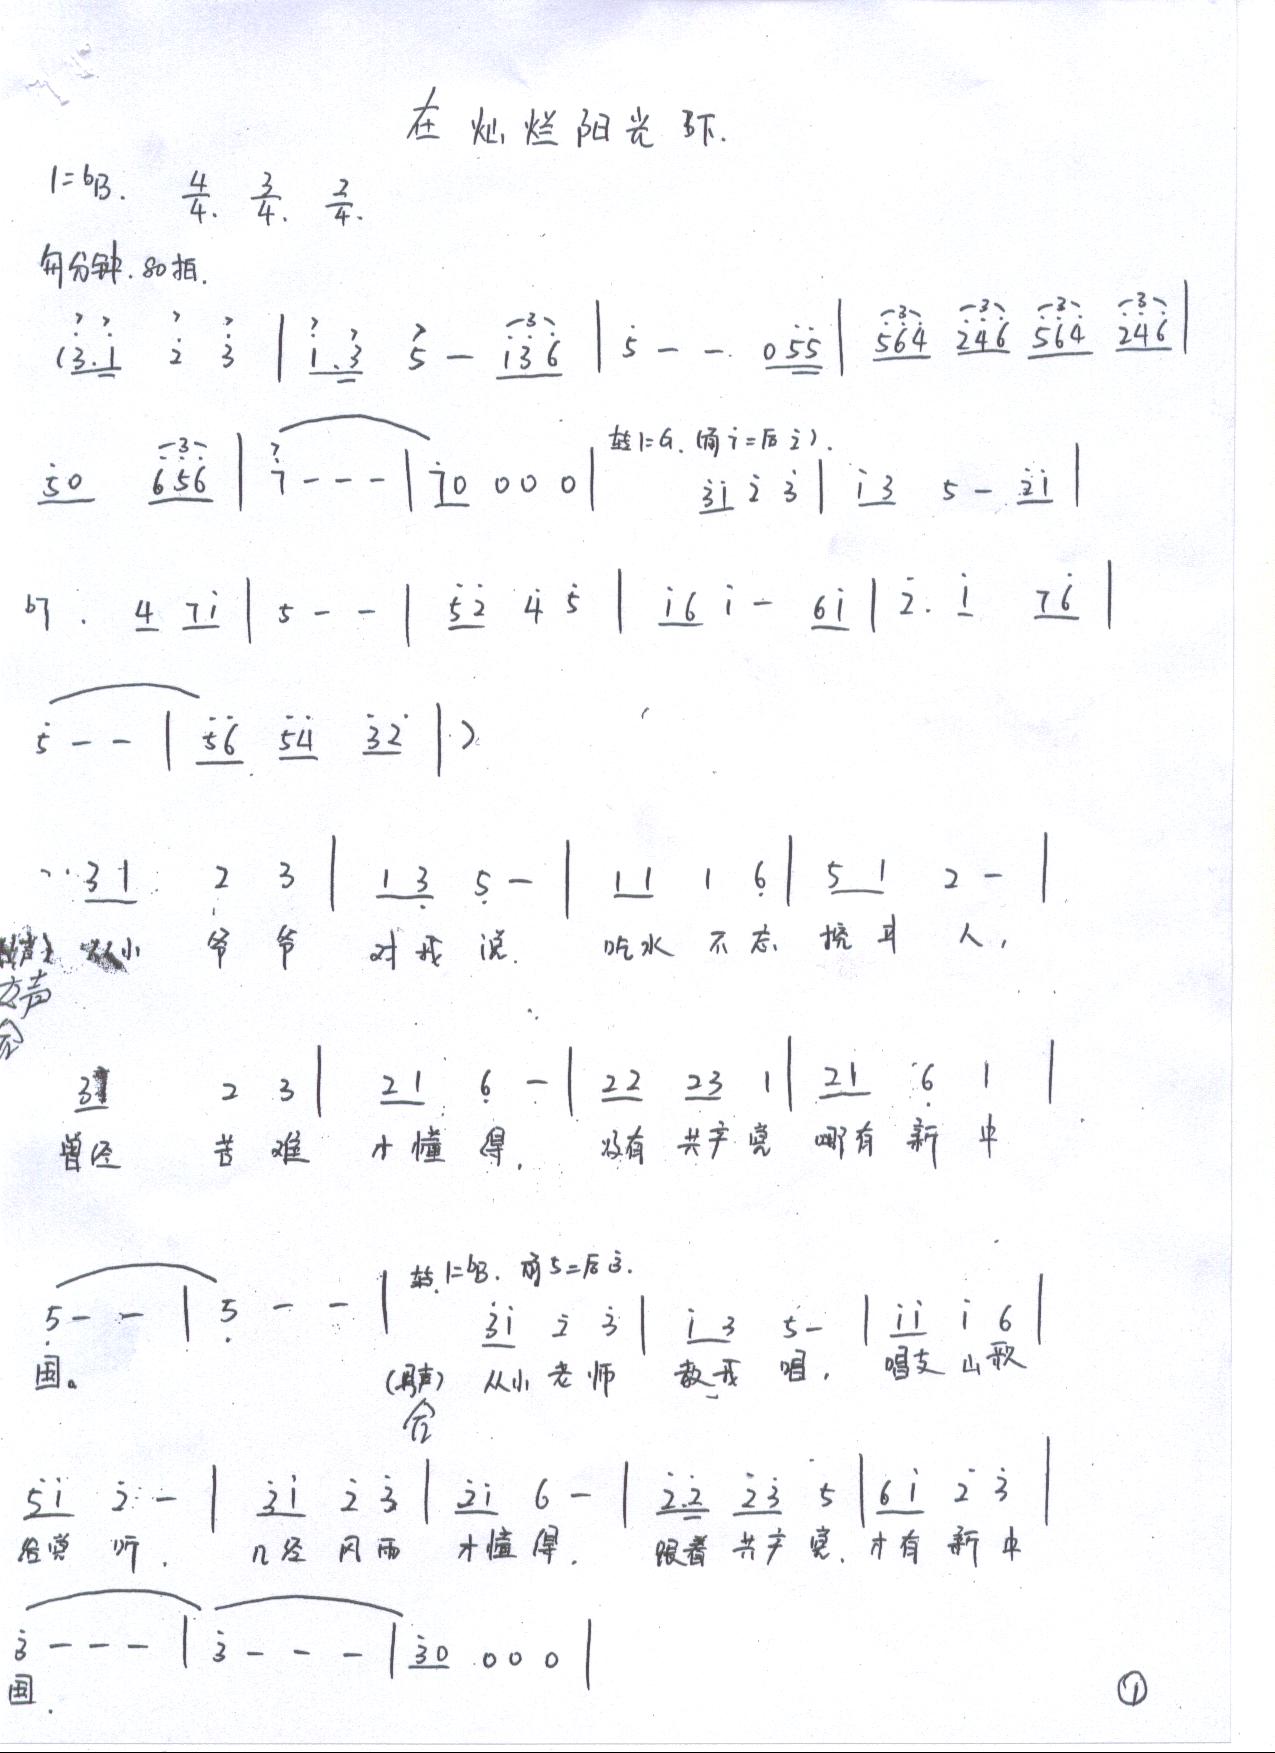 在灿烂阳光下.
1=bB. 4/4. 3/4. 2/4.
每分钟.80拍.
(3.1 2 3 | 1.3 5 - 136 | 5 - - 055 | 564 246 564 246 |
50 656 | 7 - - - | 70 0 0 0 | 转1=G.(前i=后2). 31 2 3 | 13 5 - 21 |
b7 . 4 71 | 5 - - | 52 4 5 | 16 1 - 61 | 2. 1 76 |
5 - - | 56 54 32 | )
31 2 3 | 13 5 - | 11 1 6 | 51 2 - |
从小 爷爷 对我 说. 吃水 不忘 挖井 人,
声
合
31 2 3 | 21 6 - | 22 23 1 | 21 6 1 |
曾经 苦难 才懂 得, 没有 共产党 哪有 新中
5 - - | 5 - - | 转.1=bB. 前5=后3. 31 2 3 | 13 5 - | 11 1 6 |
国。 (男声) 从小 老师 教我 唱, 唱支 山歌
合
51 2 - | 31 2 3 | 21 6 - | 2.2 23 5 | 61 2 3 |
给党 听. 几经 风雨 才懂 得. 跟着 共产党. 才有 新中
3 - - - | 3 - - - | 30 0 0 0 |
国.
①